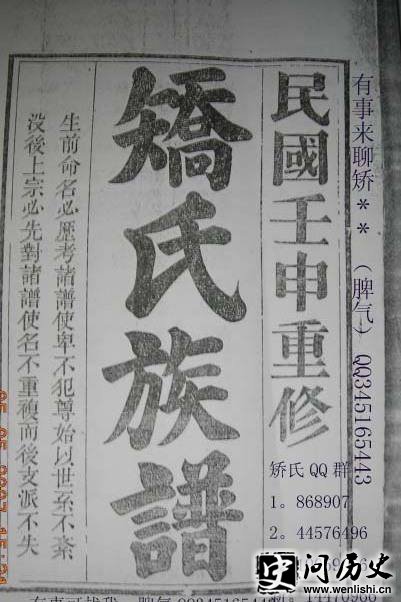 有事来聊矫＊＊ （脾气） QQ345165443
民國壬申重修
矯氏族譜
生前命名必歷考諸譜使卑不犯尊始以世系不紊
没後上宗必先對諸譜使名不重複而後支派不失
矫氏QQ群
1。868907
2。44576496
问历史
www.wenlishi.cn